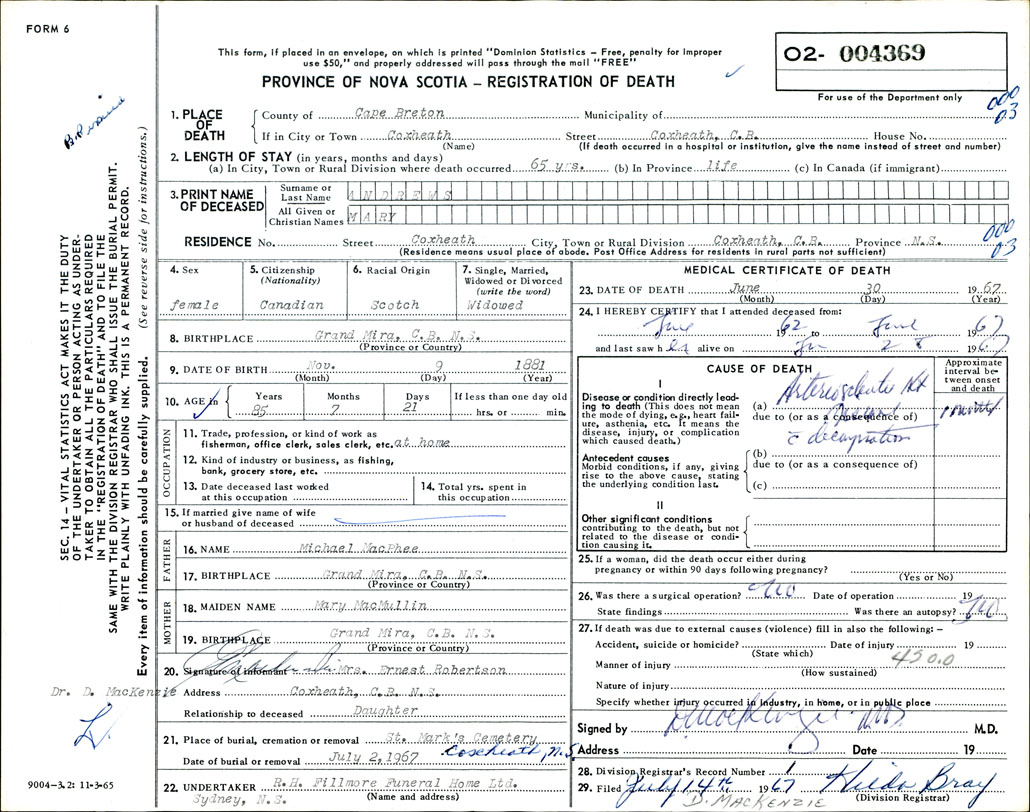 FORM 6
This form, if placed in an envelope, on which is printed "Dominion Statistics – Free, penalty for improper
use $50," and properly addressed will pass through the mail "FREE"
PROVINCE OF NOVA SCOTIA – REGISTRATION OF DEATH
02- 004369
For use of the Department only
000
03
SEC. 14 – VITAL STATISTICS ACT MAKES IT THE DUTY
OF THE UNDERTAKER OR PERSON ACTING AS UNDER-
TAKER TO OBTAIN ALL THE PARTICULARS REQUIRED
IN THE "REGISTRATION OF DEATH" AND TO FILE THE
SAME WITH THE DIVISION REGISTRAR WHO SHALL ISSUE THE BURIAL PERMIT.
WRITE PLAINLY WITH UNFADING INK. THIS IS A PERMANENT RECORD.
Every item of information should be carefully supplied. (See reverse side for instructions.)
1. PLACE OF DEATH
County of Cape Breton Municipality of
If in City or Town Coxheath Street Coxheath, C.B. House No.
(Name) (If death occurred in a hospital or institution, give the name instead of street and number)
2. LENGTH OF STAY (in years, months and days)
(a) In City, Town or Rural Division where death occurred 65 yrs. (b) In Province life (c) In Canada (if immigrant)
3. PRINT NAME OF DECEASED
Surname or Last Name ANDREWS
All Given or Christian Names MARY
RESIDENCE No. Street Coxheath City, Town or Rural Division Coxheath, C.B. Province N.S.
(Residence means usual place of abode. Post Office Address for residents in rural parts not sufficient)
000
03
4. Sex
female
5. Citizenship
(Nationality)
Canadian
6. Racial Origin
Scotch
7. Single, Married,
Widowed or Divorced
(write the word)
Widowed
8. BIRTHPLACE Grand Mira, C.B. N.S.
(Province or Country)
9. DATE OF BIRTH Nov. 9 1881
(Month) (Day) (Year)
10. AGE in Years Months Days If less than one day old
85 7 21 hrs. or min.
OCCUPATION
11. Trade, profession, or kind of work as
fisherman, office clerk, sales clerk, etc. at home
12. Kind of industry or business, as fishing,
bank, grocery store, etc.
13. Date deceased last worked
at this occupation
14. Total yrs. spent in
this occupation
15. If married give name of wife
or husband of deceased
FATHER
16. NAME Michael MacPhee
17. BIRTHPLACE Grand Mira, C.B. N.S.
(Province or Country)
MOTHER
18. MAIDEN NAME Mary MacMullin
19. BIRTHPLACE Grand Mira, C.B. N.S.
(Province or Country)
20. Signature of informant Mrs. Ernest Robertson
Dr. D. MacKenzie
Address Coxheath, C.B. N.S.
Relationship to deceased Daughter
21. Place of burial, cremation or removal St. Mark's Cemetery
Coxheath, N.S.
Date of burial or removal July 2, 1967
22. UNDERTAKER R.H. Fillmore Funeral Home Ltd.
Sydney, N.S. (Name and address)
9004–3.2: 11-3-65
MEDICAL CERTIFICATE OF DEATH
23. DATE OF DEATH June 30 1967
(Month) (Day) (Year)
24. I HEREBY CERTIFY that I attended deceased from:
June 1962 to June 1967
and last saw her alive on Jun 28 1967
CAUSE OF DEATH
Approximate interval between onset and death
I
Disease or condition directly lead-
ing to death (This does not mean
the mode of dying, e.g., heart fail-
ure, asthenia, etc. It means the
disease, injury, or complication
which caused death.)
(a) Arteriosclerotic Ht
due to (or as a consequence of)
Disease
c decompensation
1 month
Antecedent causes
Morbid conditions, if any, giving
rise to the above cause, stating
the underlying condition last.
(b)
due to (or as a consequence of)
(c)
II
Other significant conditions
contributing to the death, but not
related to the disease or condi-
tion causing it.
25. If a woman, did the death occur either during
pregnancy or within 90 days following pregnancy?
(Yes or No)
26. Was there a surgical operation? No Date of operation 19
State findings Was there an autopsy? No
27. If death was due to external causes (violence) fill in also the following: –
Accident, suicide or homicide? Date of injury 19
(State which)
450.0
Manner of injury
(How sustained)
Nature of injury
Specify whether injury occurred in industry, in home, or in public place
Signed by M.D.
Address Date 19
28. Division Registrar's Record Number 1
29. Filed July 14th 1967 Hilda Bray
D. MACKENZIE (Division Registrar)